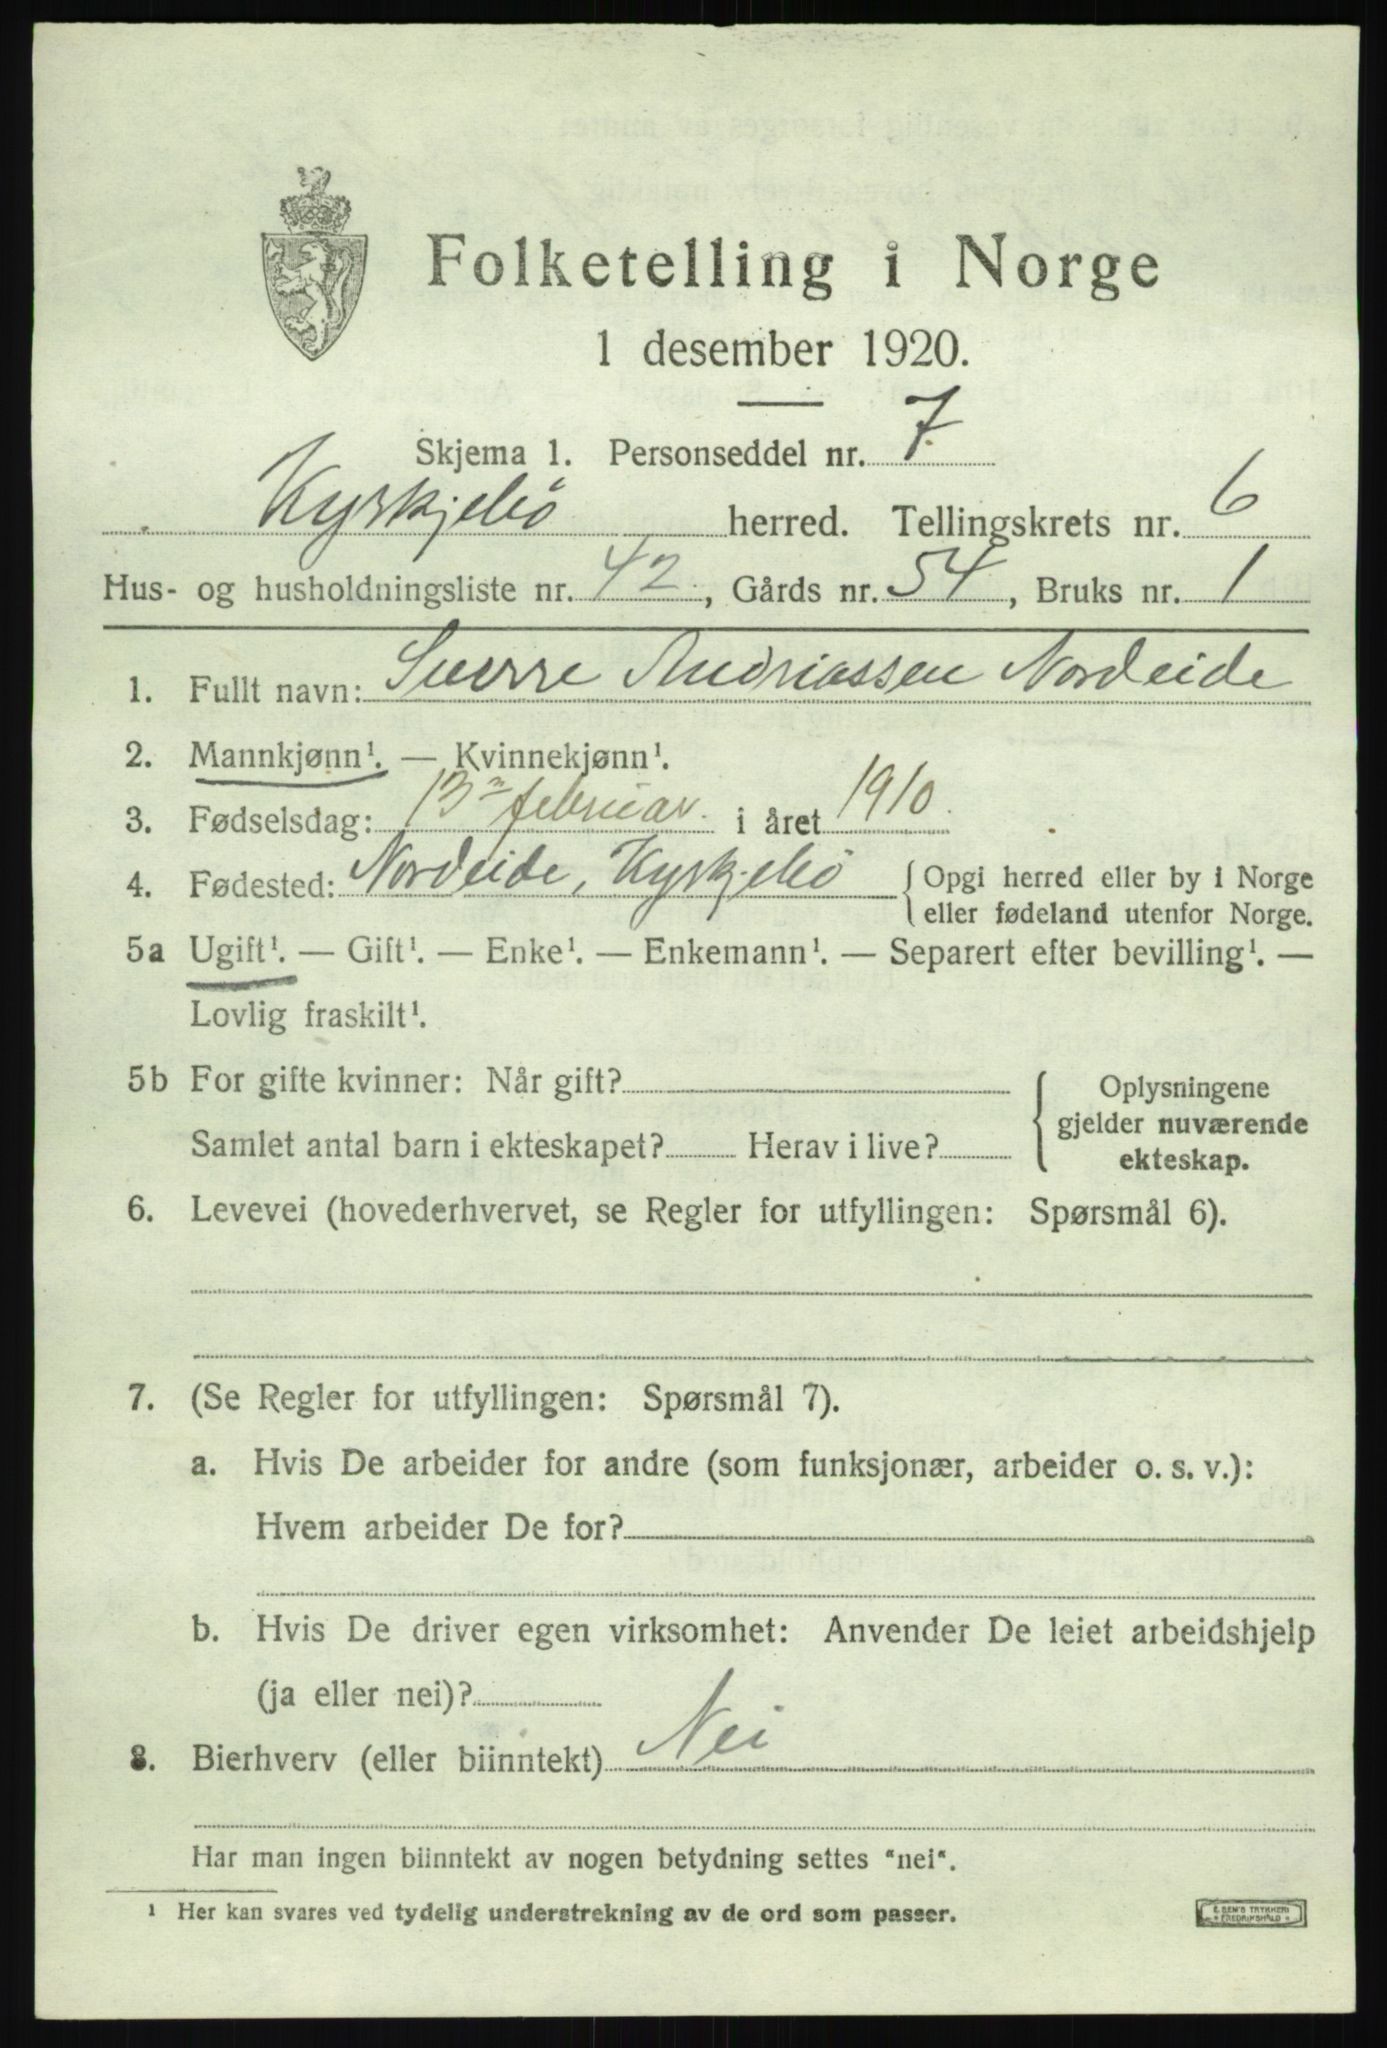 Folketelling i Norge
1 desember 1920.
Skjema 1. Personseddel nr. 7
Kyrkjebö herred. Tellingskrets nr. 6
Hus- og husholdningsliste nr. 42, Gårds nr. 54, Bruks nr. 1
1. Fullt navn: Sverre Andriassen Nordeide
2. Mannkjønn¹. — Kvinnekjønn¹.
3. Fødselsdag: 13de februar i året 1910.
4. Fødested: Nordeide, Kyrkjebö { Opgi herred eller by i Norge
eller fødeland utenfor Norge.
5a Ugift¹. — Gift¹. — Enke¹. — Enkemann¹. — Separert efter bevilling¹. —
Lovlig fraskilt¹.
5b For gifte kvinner: Når gift?
Samlet antal barn i ekteskapet? Herav i live?
{ Oplysningene
gjelder nuværende
ekteskap.
6. Levevei (hovederhvervet, se Regler for utfyllingen: Spørsmål 6).
7. (Se Regler for utfyllingen: Spørsmål 7).
a. Hvis De arbeider for andre (som funksjonær, arbeider o. s. v.):
Hvem arbeider De for?
b. Hvis De driver egen virksomhet: Anvender De leiet arbeidshjelp
(ja eller nei)?
8. Bierhverv (eller biinntekt) Nei
Har man ingen biinntekt av nogen betydning settes "nei".
¹ Her kan svares ved tydelig understrekning av de ord som passer.
E. SEM'S TRYKKERI
FREDRIKSHALD